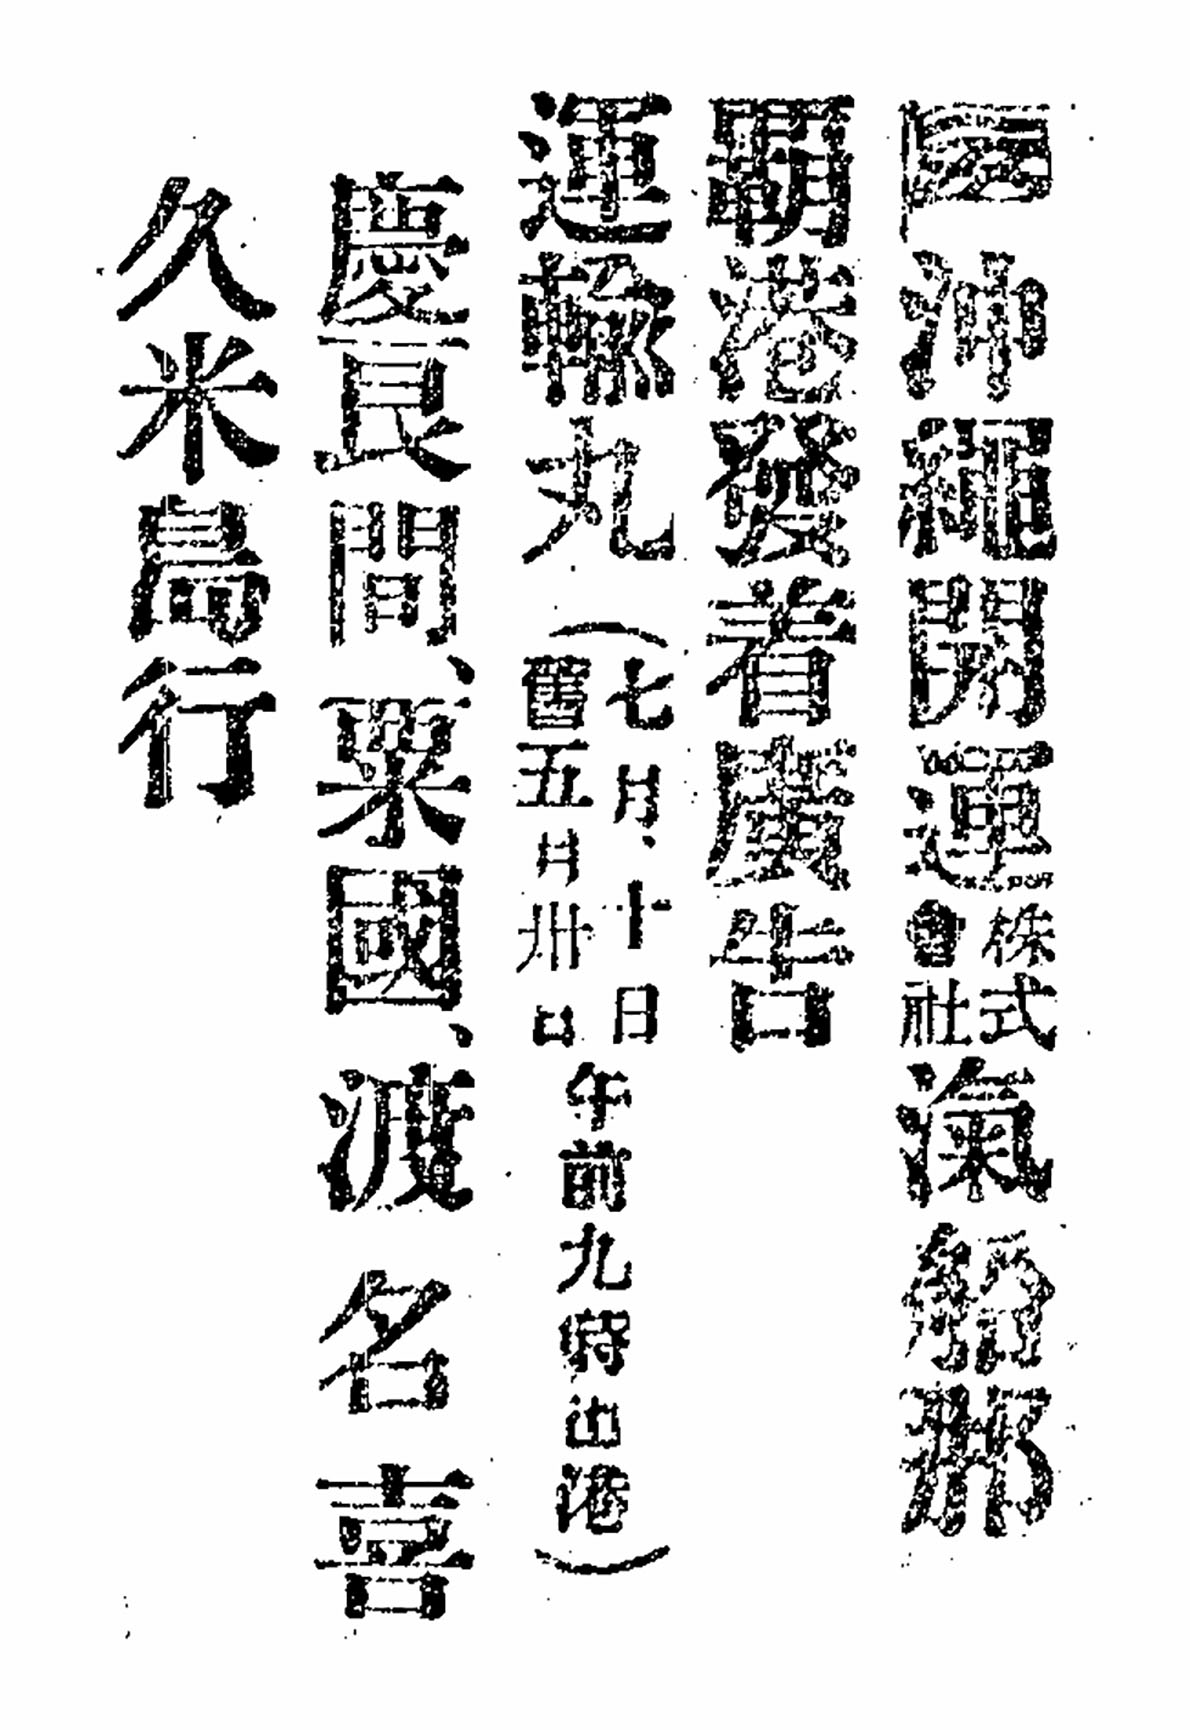 沖縄開運株式會社滊船那
覇港發着廣告
運輸丸(七月十日舊五月卅日午前九時出港)
慶良間、粟國、渡名喜
久米島行